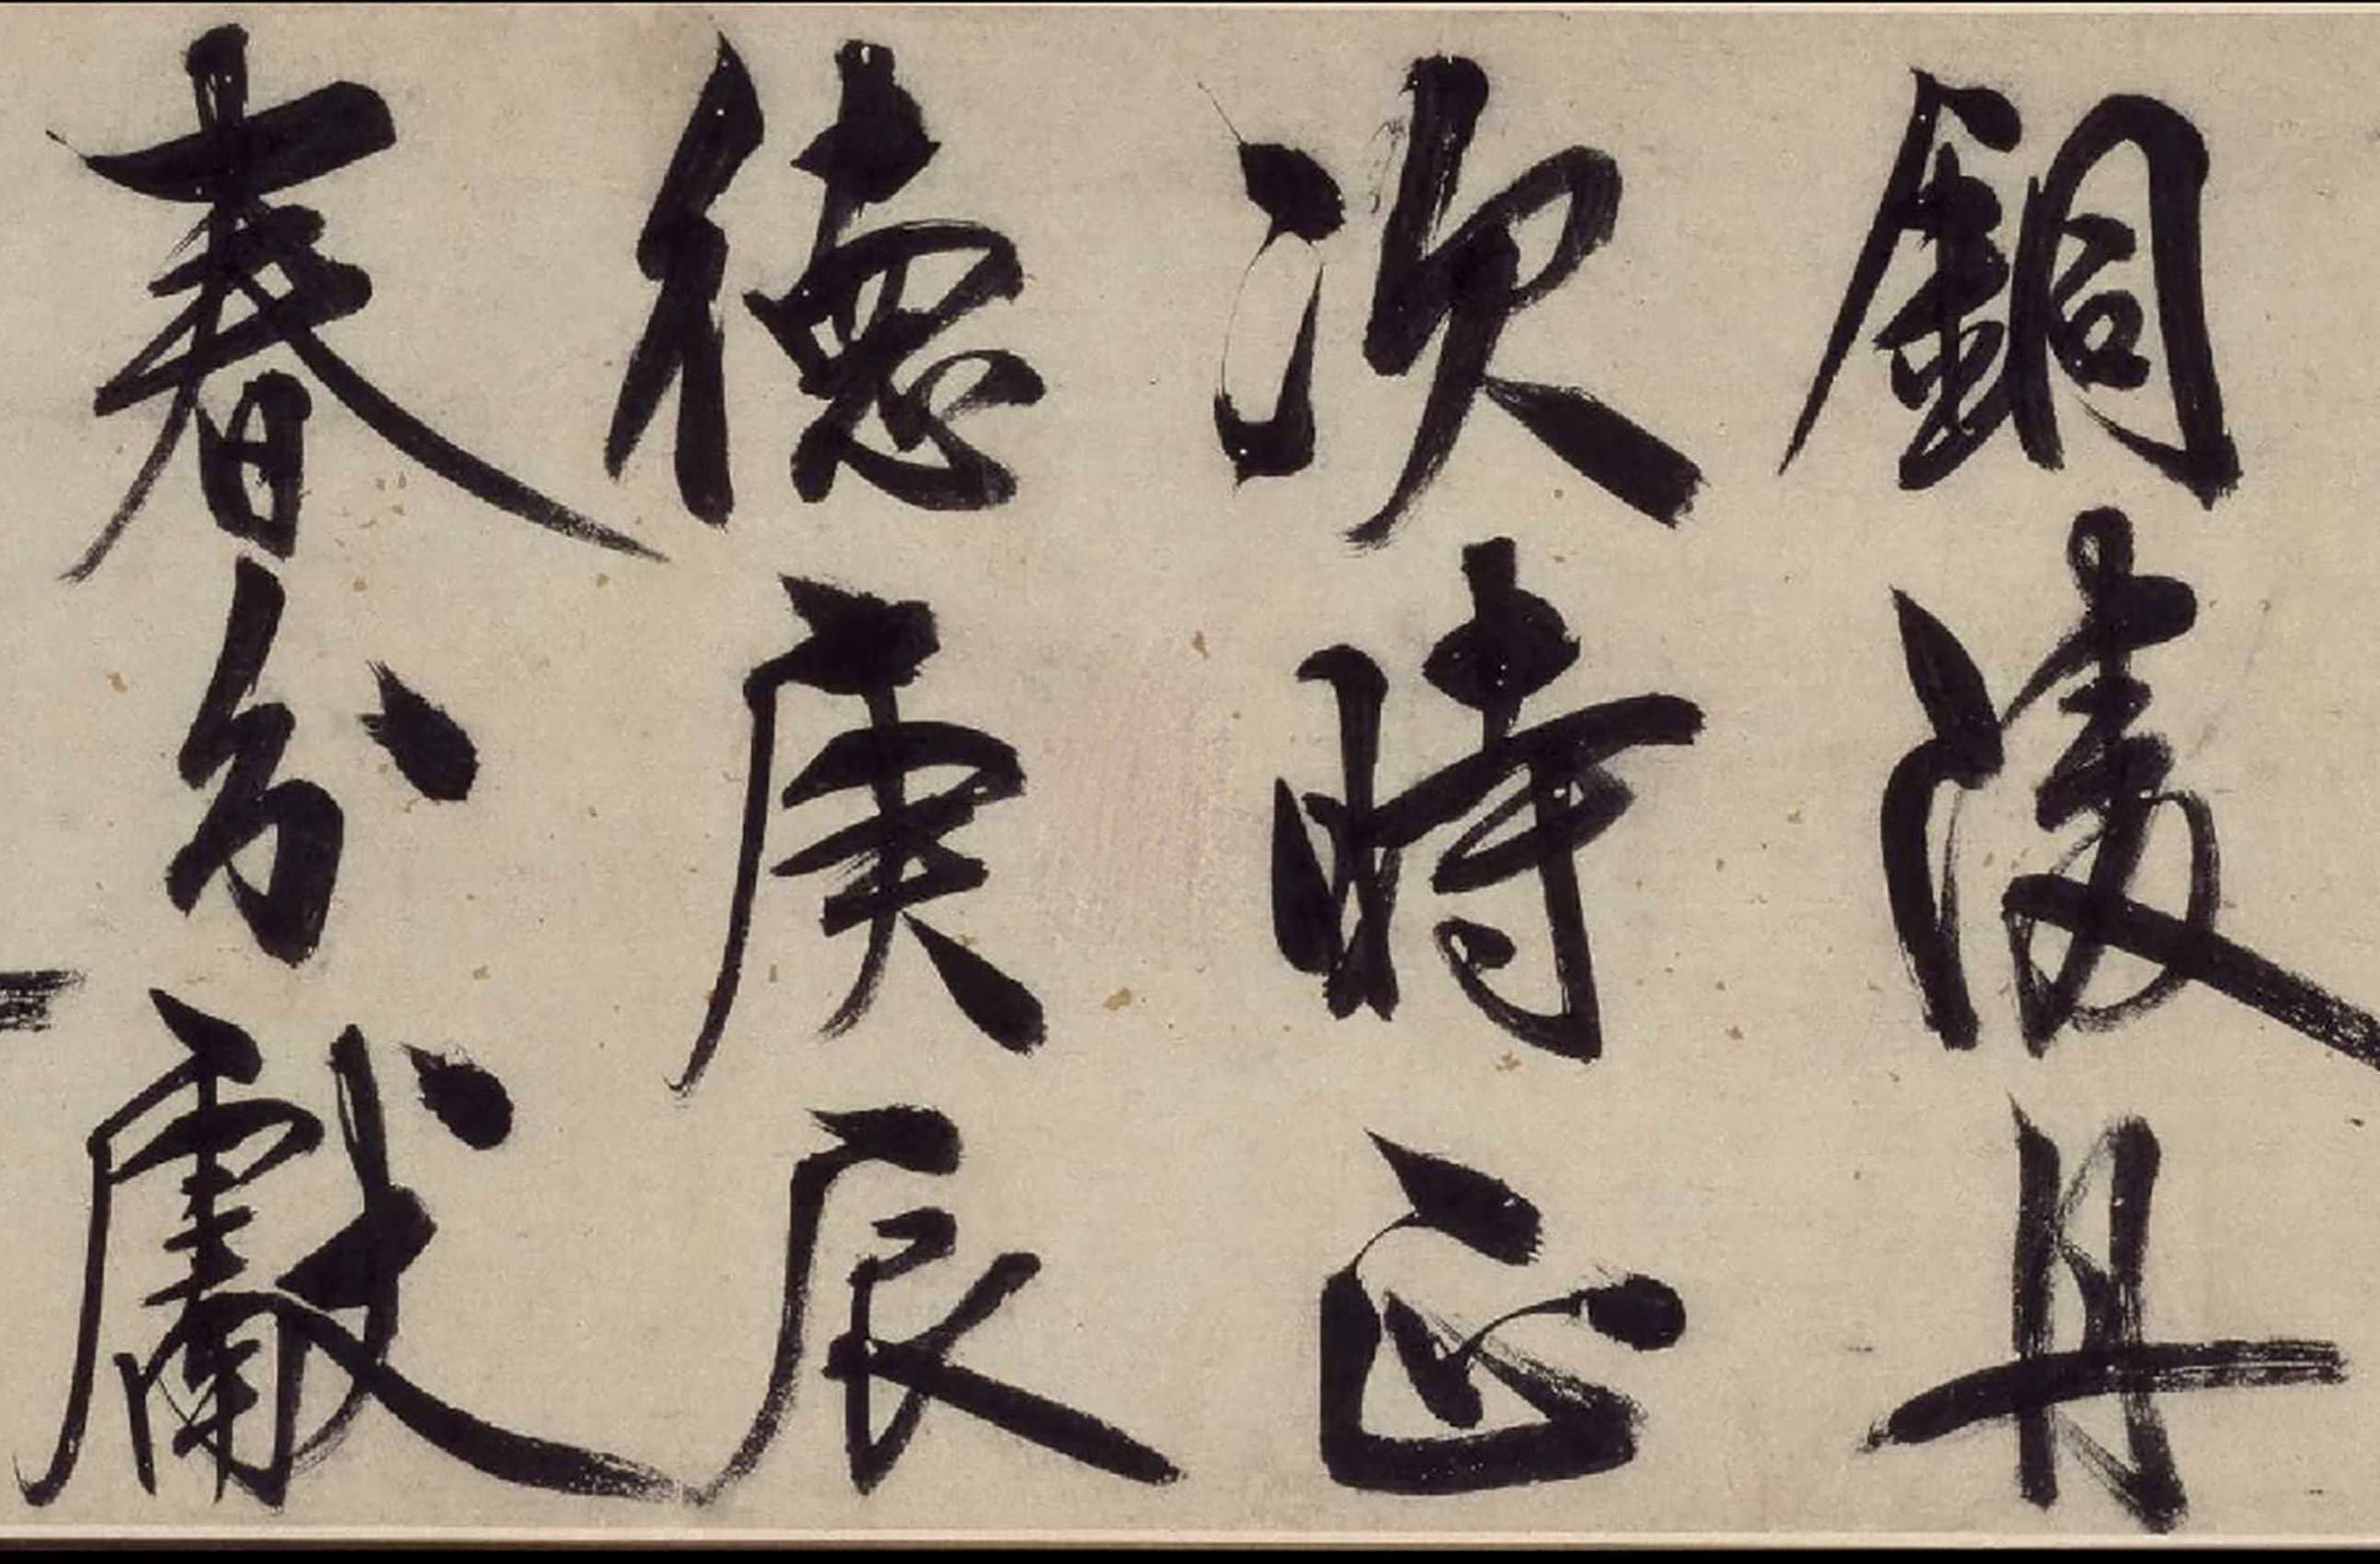 銅陵舟
次時正
德庚辰
春分獻